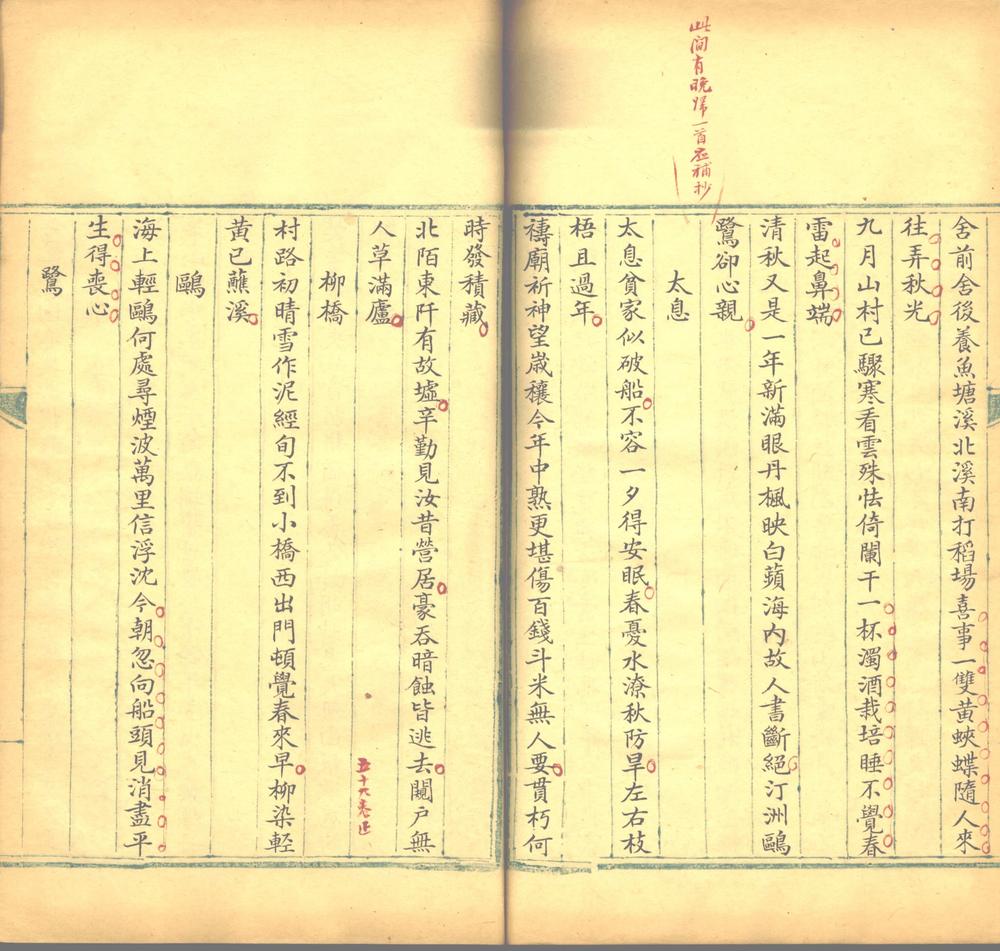 此間有晚歸一首应補抄
舍前舍後養魚塘溪北溪南打稻場喜事一雙黃蛺蝶隨人來
往弄秋光
九月山村已驟寒看雲殊怯倚闌干一杯濁酒栽培睡不覺春
雷起鼻端
清秋又是一年新滿眼丹楓映白蘋海內故人書斷絕汀洲鷗
鷺卻心親
太息
太息貧家似破船不容一夕得安眠春憂水潦秋防旱左右枝
梧且過年
禱廟祈神望歲穰今年中熟更堪傷百錢斗米無人要貫朽何
時發積藏
北陌東阡有故墟辛勤見汝昔營居豪吞暗蝕皆逃去闚戶無
人草滿廬
五十六卷迄
柳橋
村路初晴雪作泥經旬不到小橋西出門頓覺春來早柳染輕
黃已蘸溪
鷗
海上輕鷗何處尋煙波萬里信浮沈今朝忽向船頭見消盡平
生得喪心
鷺